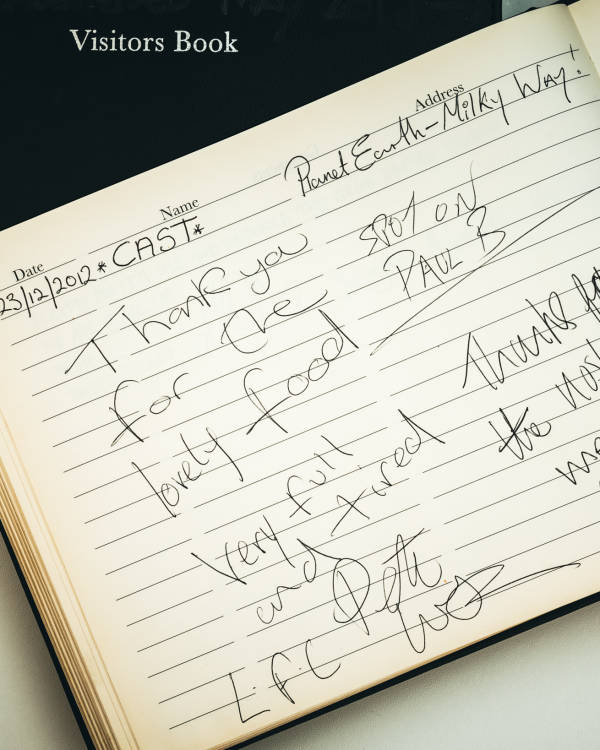 Visitors Book
Date Name Address
23/12/2012 *CAST* Planet Earth - Milky Way!
Thank you
for the
lovely food
very full
and tired
L.F.C
SPOT ON
PAUL B
Thanks for
the